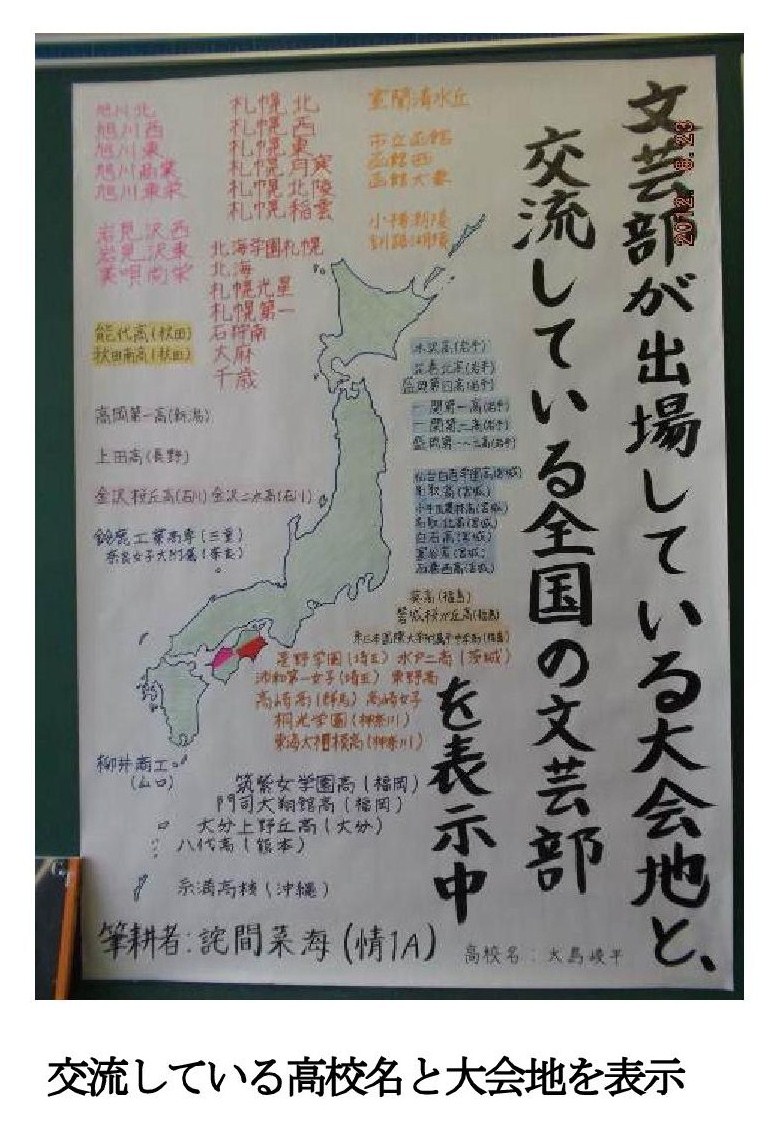 文芸部が出場している大会地と、
交流している全国の文芸部
を表示中
2012. 8. 23
旭川北
旭川西
旭川東
旭川商業
旭川東栄
岩見沢西
岩見沢東
美唄尚栄
札幌北
札幌西
札幌東
札幌月寒
札幌北陵
札幌稲雲
北海学園札幌
北海
札幌光星
札幌第一
石狩南
大麻
千歳
室蘭清水丘
市立函館
函館西
函館大妻
小樽潮陵
釧路湖陵
能代高(秋田)
秋田南高(秋田)
高岡第一高(新潟)
上田高(長野)
金沢桜丘高(石川) 金沢二水高(石川)
鈴鹿工業高専(三重)
奈良女子大附属(奈良)
水沢高(岩手)
花巻北高(岩手)
盛岡第四高(岩手)
一関第一高(岩手)
一関第二高(岩手)
盛岡第一・三高(岩手)
仙台白百合学園高(宮城)
名取高(宮城)
小牛田農林高(宮城)
名取北高(宮城)
白石高(宮城)
石巻西高(宮城)
葵高(福島)
磐城桜が丘高(福島)
星野学園(埼玉) 水戸二高(茨城)
浦和第一女子(埼玉)
高崎高(群馬) 高崎女子
桐光学園(神奈川)
東海大相模高(神奈川)
柳井商工
(山口)
筑紫女学園高(福岡)
門司大翔館高(福岡)
大分上野丘高(大分)
八代高(熊本)
糸満高校(沖縄)
筆耕者:詫間菜海(情1A)
高校名:大島崚平
交流している高校名と大会地を表示